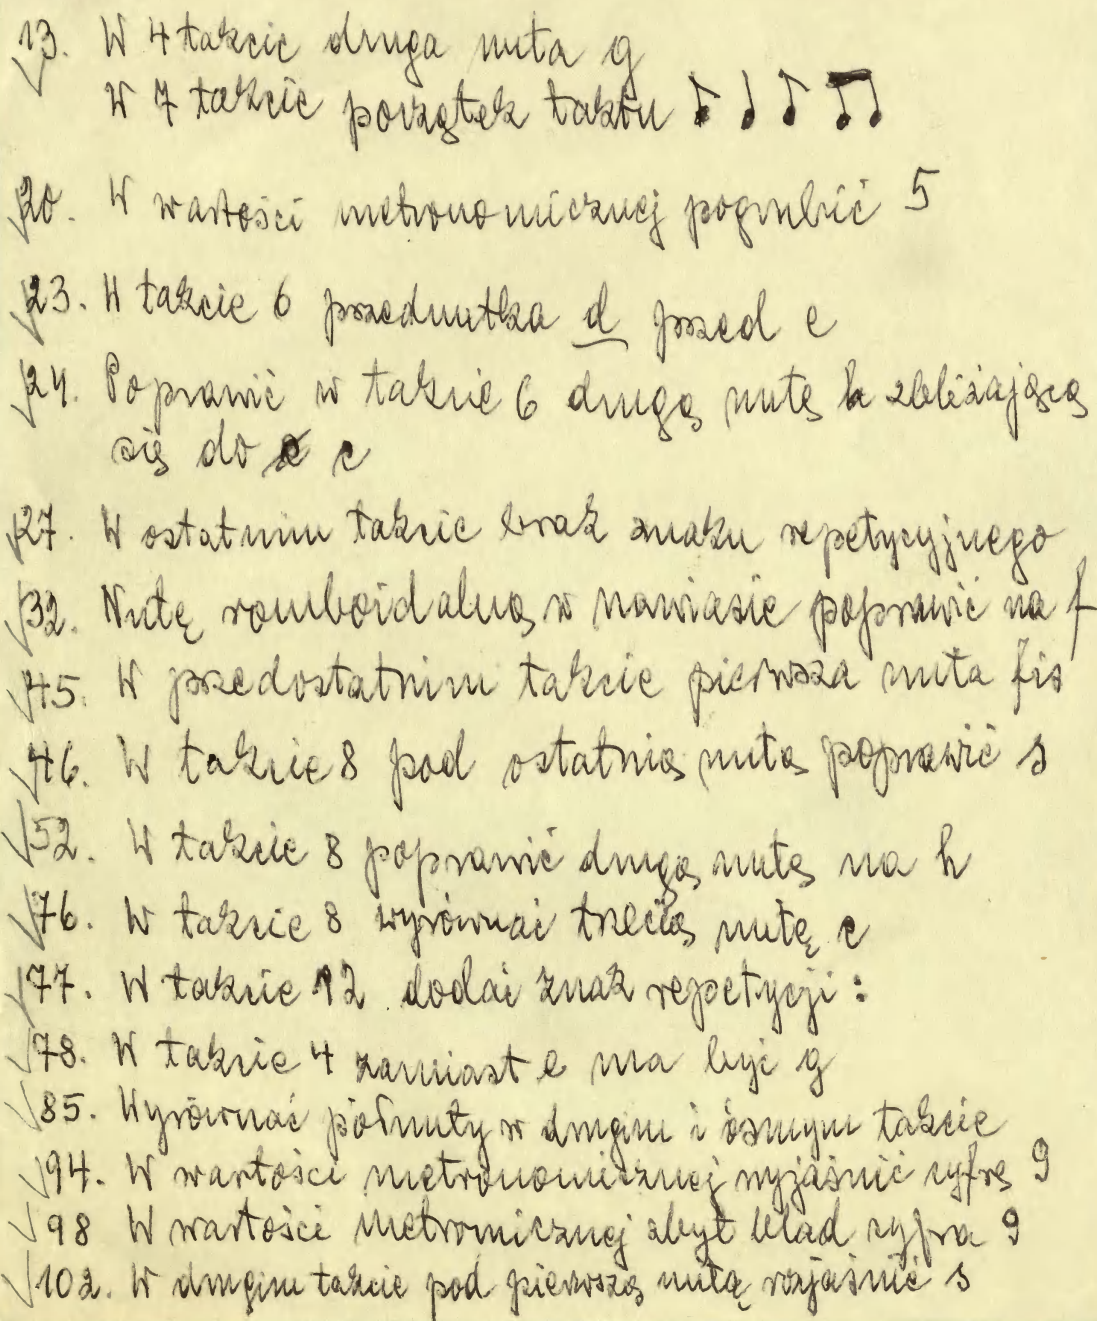 13. W 4 takcie druga nuta g
W 7 takcie początek taktu ♪ ♩ ♪ ♫
20. W wartości metronomicznej pogrubić 5
23. W takcie 6 przednutka d przed c
24. Poprawić w takcie 6 drugą nutę h zbliżającą
się do c
27. W ostatnim takcie brak znaku repetycyjnego
32. Nutę romboidalną w nawiasie poprawić na f
45. W przedostatnim takcie pierwsza nuta fis
46. W takcie 8 pod ostatnią nutą poprawić s
52. W takcie 8 poprawić drugą nutę na h
76. W takcie 8 wyrównać trzecią nutę c
77. W takcie 12 dodać znak repetycji :
78. W takcie 4 zamiast e ma być g
85. Wyrównać półnuty w drugim i ósmym takcie
94. W wartości metronomicznej wyjaśnić cyfrę 9
98 W wartości metromicznej zbyt blad cyfra 9
102. W drugim takcie pod pierwszą nutą rozjaśnić s